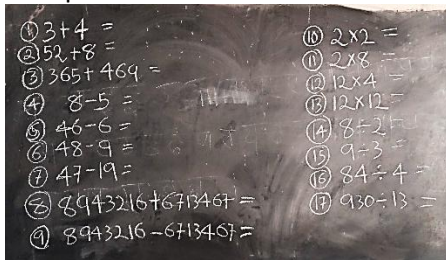 ① 3+4 =
② 52+8 =
③ 365+469 =
④ 8-5 =
⑤ 46-6 =
⑥ 48-9 =
⑦ 47-19 =
⑧ 8943216+6713467 =
⑨ 8943216-6713467 =
⑩ 2×2 =
⑪ 2×8 =
⑫ 12×4 =
⑬ 12×12 =
⑭ 8÷2 =
⑮ 9÷3 =
⑯ 84÷4 =
⑰ 930÷13 =